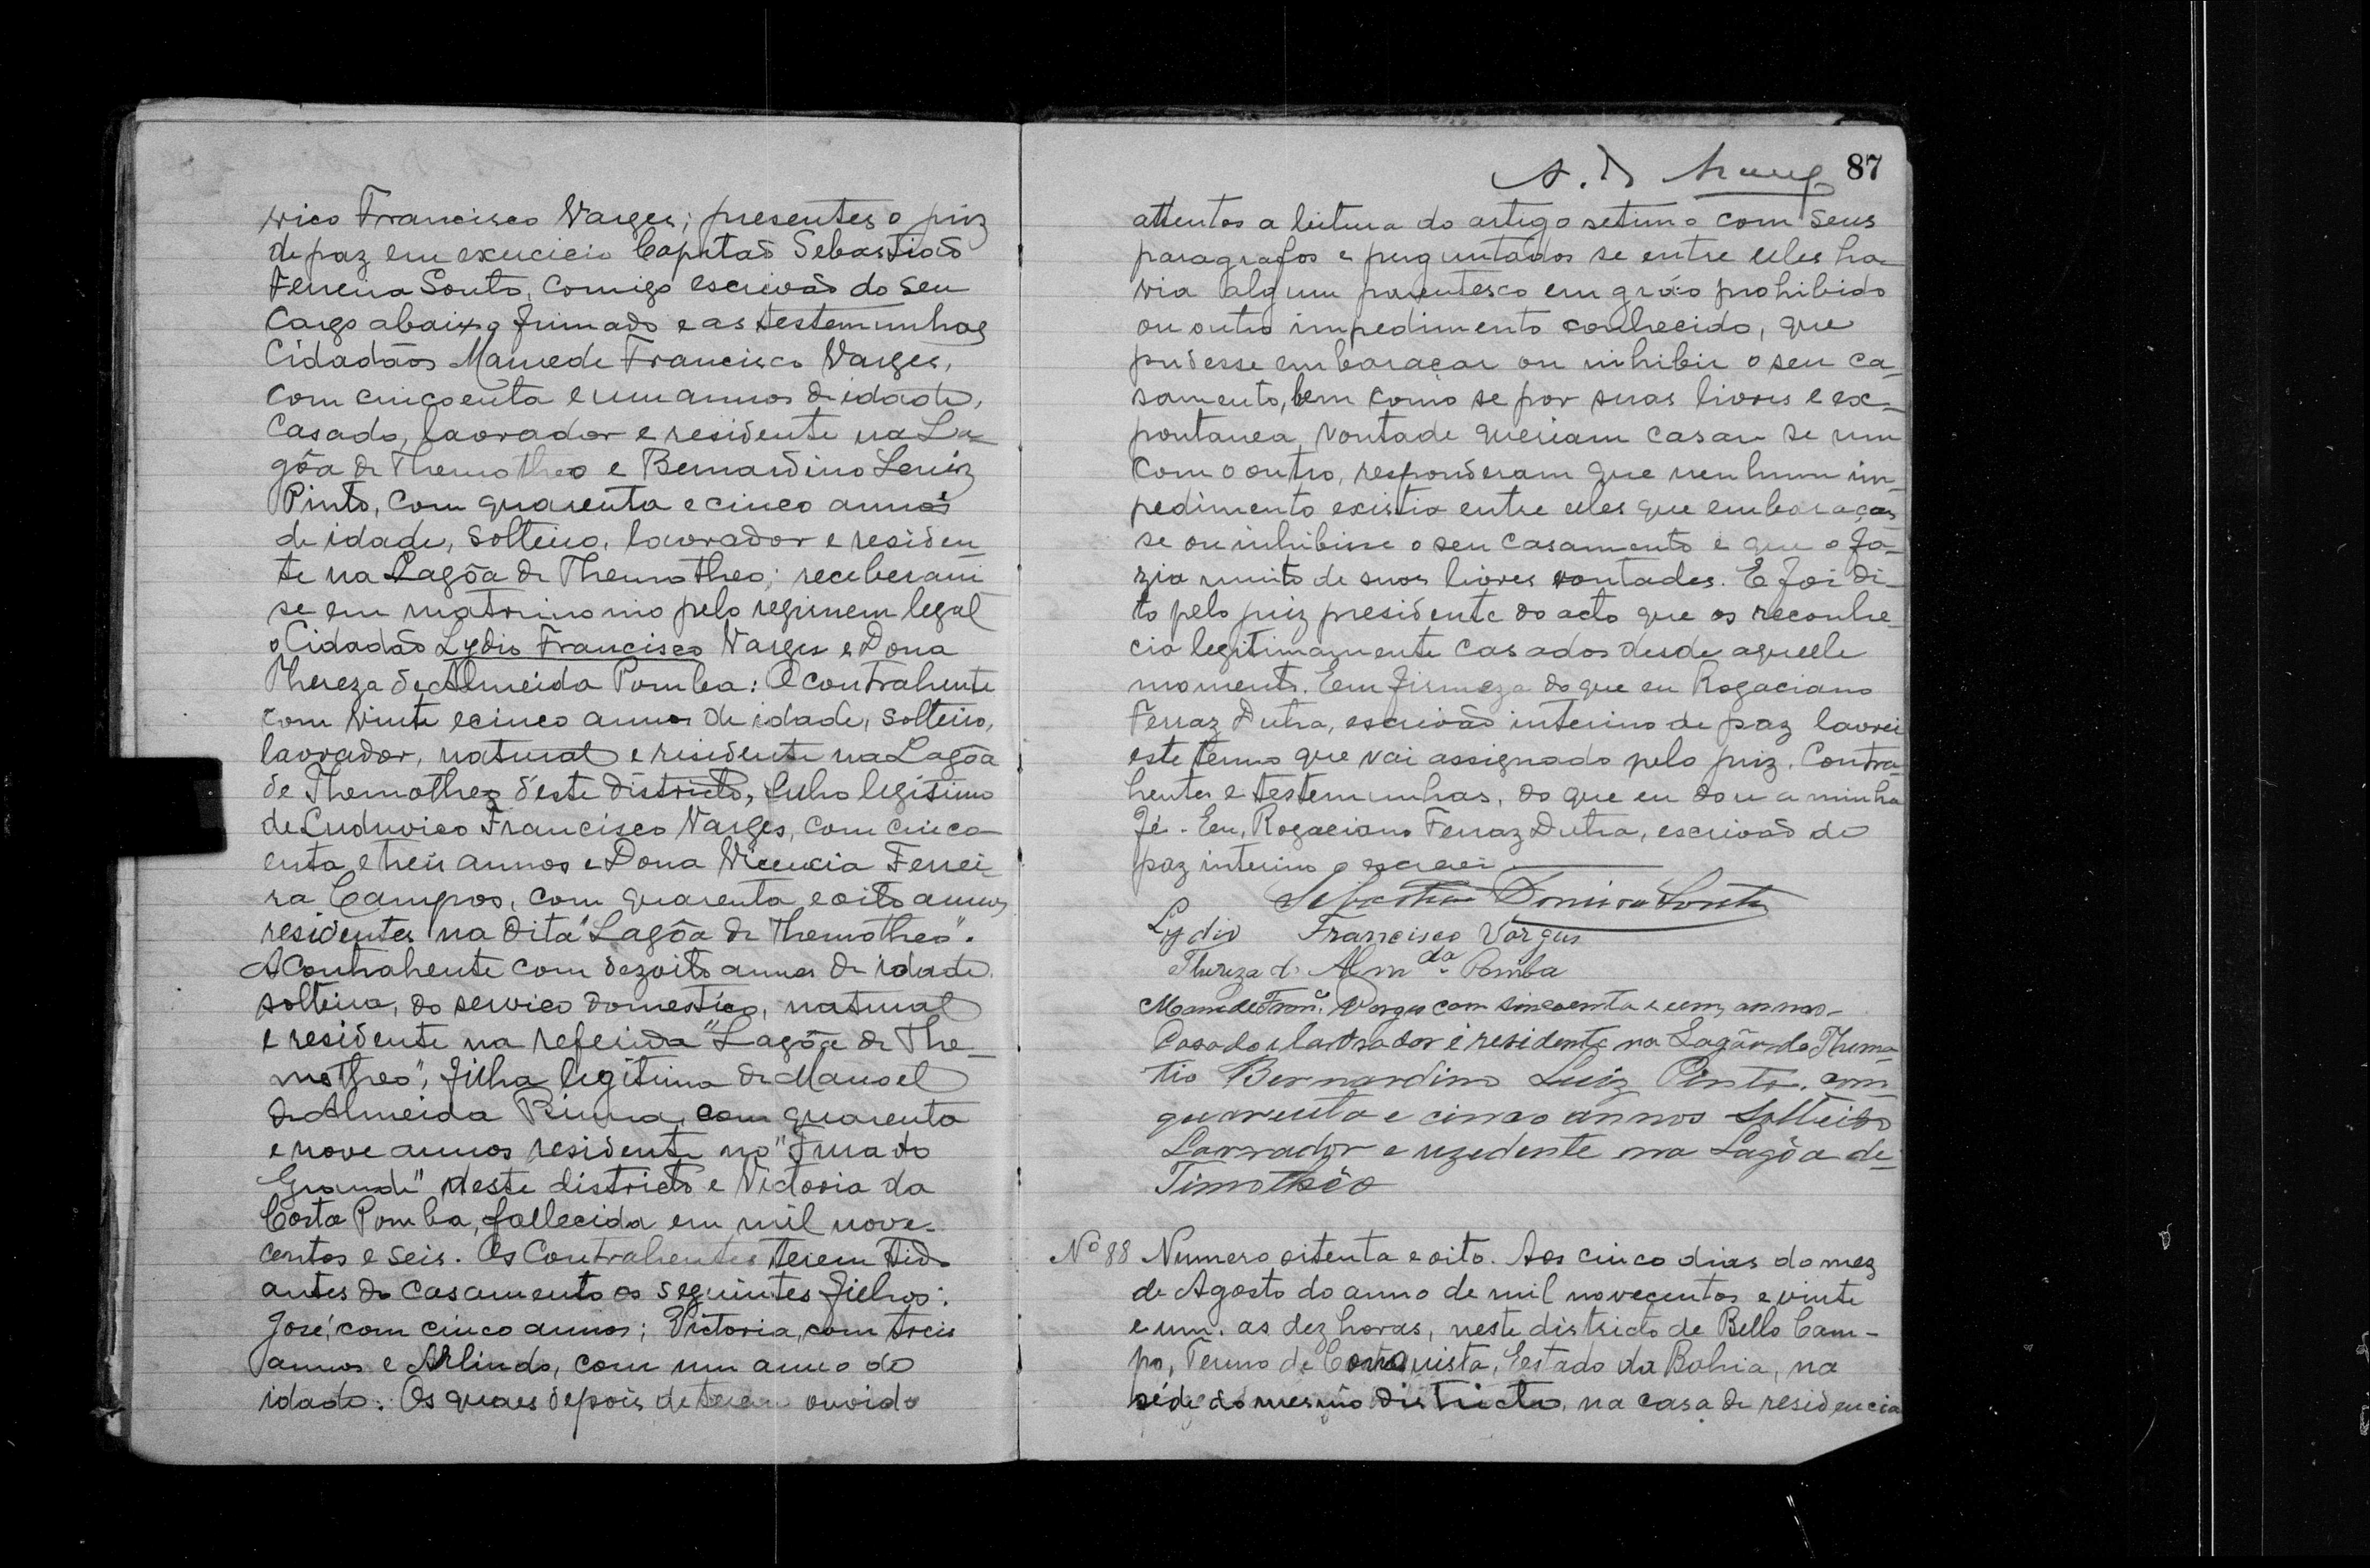 vico Francisco Varges; presentes o juiz
de paz em exercicio Capitaõ Sebastiaõ
Ferreira Souto, comigo escrivaõ do seu
cargo abaixo firmado e as testemunhas
Cidadãos Mamede Francisco Varges,
com cincoenta e um annos de idade,
Casado, lavrador e residente na La-
gôa de Themotheo e Bernardino Luiz
Pinto, com quarenta e cinco annos
de idade, solteiro, lavrador e residen-
te na Lagôa de Themotheo; receberam
se em matrimonio pelo regimem legal
o Cidadão Lydio Francisco Varges e Dona
Thereza de Almeida Pomba: O contrahente
com vinte e cinco annos de idade, solteiro,
lavrador, natural e residente na Lagôa
de Themotheo d'este districto, filho legitimo
de Luduvico Francisco Varges, com cinco-
enta e treis annos e Dona Vicencia Ferrei
ra Campos, com quarenta e oito annos
residentes na dita "Lagôa de Themotheo".
A Contrahente com dezoito annos de idade
solteira, do servico domestico, natural
e residente na referida "Lagôa de The-
motheo", filha legitima de Manoel
de Almeida com quarenta
e nove annos residente no "Furado
Grande" deste districto e Victoria da
Costa Pomba, fallecida em mil nove-
centos e seis. Os Contrahentes terem tido
antes do casamento os seguintes filhos:
José, com cinco annos; Victoria, com treis
annos e Arlindo, com um anno de
idade. Os quaes depois de terem ouvido
87
attentos a leitura do artigo setimo com seus
paragrafos e perguntados se entre elles ha-
via algum parentesco em gráo prohibido
ou outro impedimento conhecido, que
pudesse embaraçar ou inhibir o seu ca-
samento, bem como se por suas livres e ex-
pontanea vontade queriam casar se um
com o outro, responderam que nenhum im-
pedimento existia entre elles que embaraças
se ou inhibisse o seu casamento e que o fa-
zia muito de suas livres vontades. E foi di-
to pelo juiz presidente do acto que os reconhe-
cia legitimamente casados desde aquelle
momento. Em firmeza do que eu Rogaciano
Ferraz Dutra, escrivaõ interino de paz lavrei
este termo que vai assignado pelo juiz, Contra-
hentes e testemunhas, do que eu dou a minha
fé. Eu, Rogaciano Ferraz Dutra, escrivaõ de
paz interino o escrevi
Sebastião Ferreira Souto
Lydio Francisco Varges
Thereza d. Almda. Pomba
Mamede Franc. Varges com sincoenta e um annos-
Casado e lavrador e residente na Lagôa do Thimo-
tio Bernardino Luiz Pinto. com
quarenta e cinco annos solteiro
Larvador e rezedente na Lagôa de
Timothêo
Nº 88 Numero oitenta e oito. Aos cinco dias do mez
de Agosto do anno de mil novecentos e vinte
e um. as dez horas, neste districto de Bello Cam-
po, Termo de Conquista, Estado da Bahia, na
séde do mesmo districto, na casa de residencia